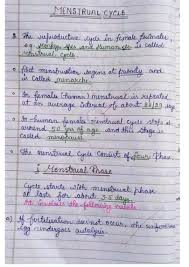 MENSTRUAL CYCLE
The reproductive cycle in female primates,
eg Monkey Apes and Humans etc is called
menstrual cycle
First menstruation begins at puberty and
is called menarche.
In female (human) menstrual is repeated
at an average interval of about 28/29 days
In human female menstrual cycle stops at
around 50 yrs of age and this stage is
called menopause
The menstrual cycle consist of four phase.
I Menstrual Phase
Cycle starts with menstrual phase
lasts for about 3-5 days.
It involves the following
a) If fertilisation doesnot occur, the
egg undergoes autolysis.